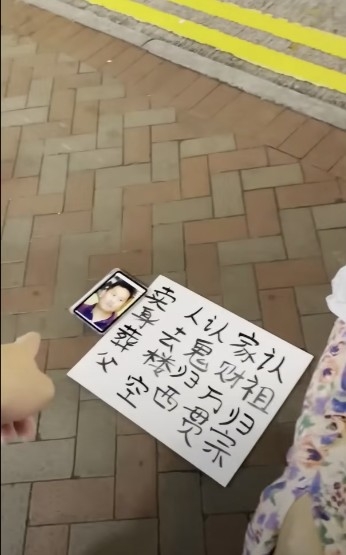 卖身葬父
人去楼空
认鬼归西
家财万贯
认祖归宗